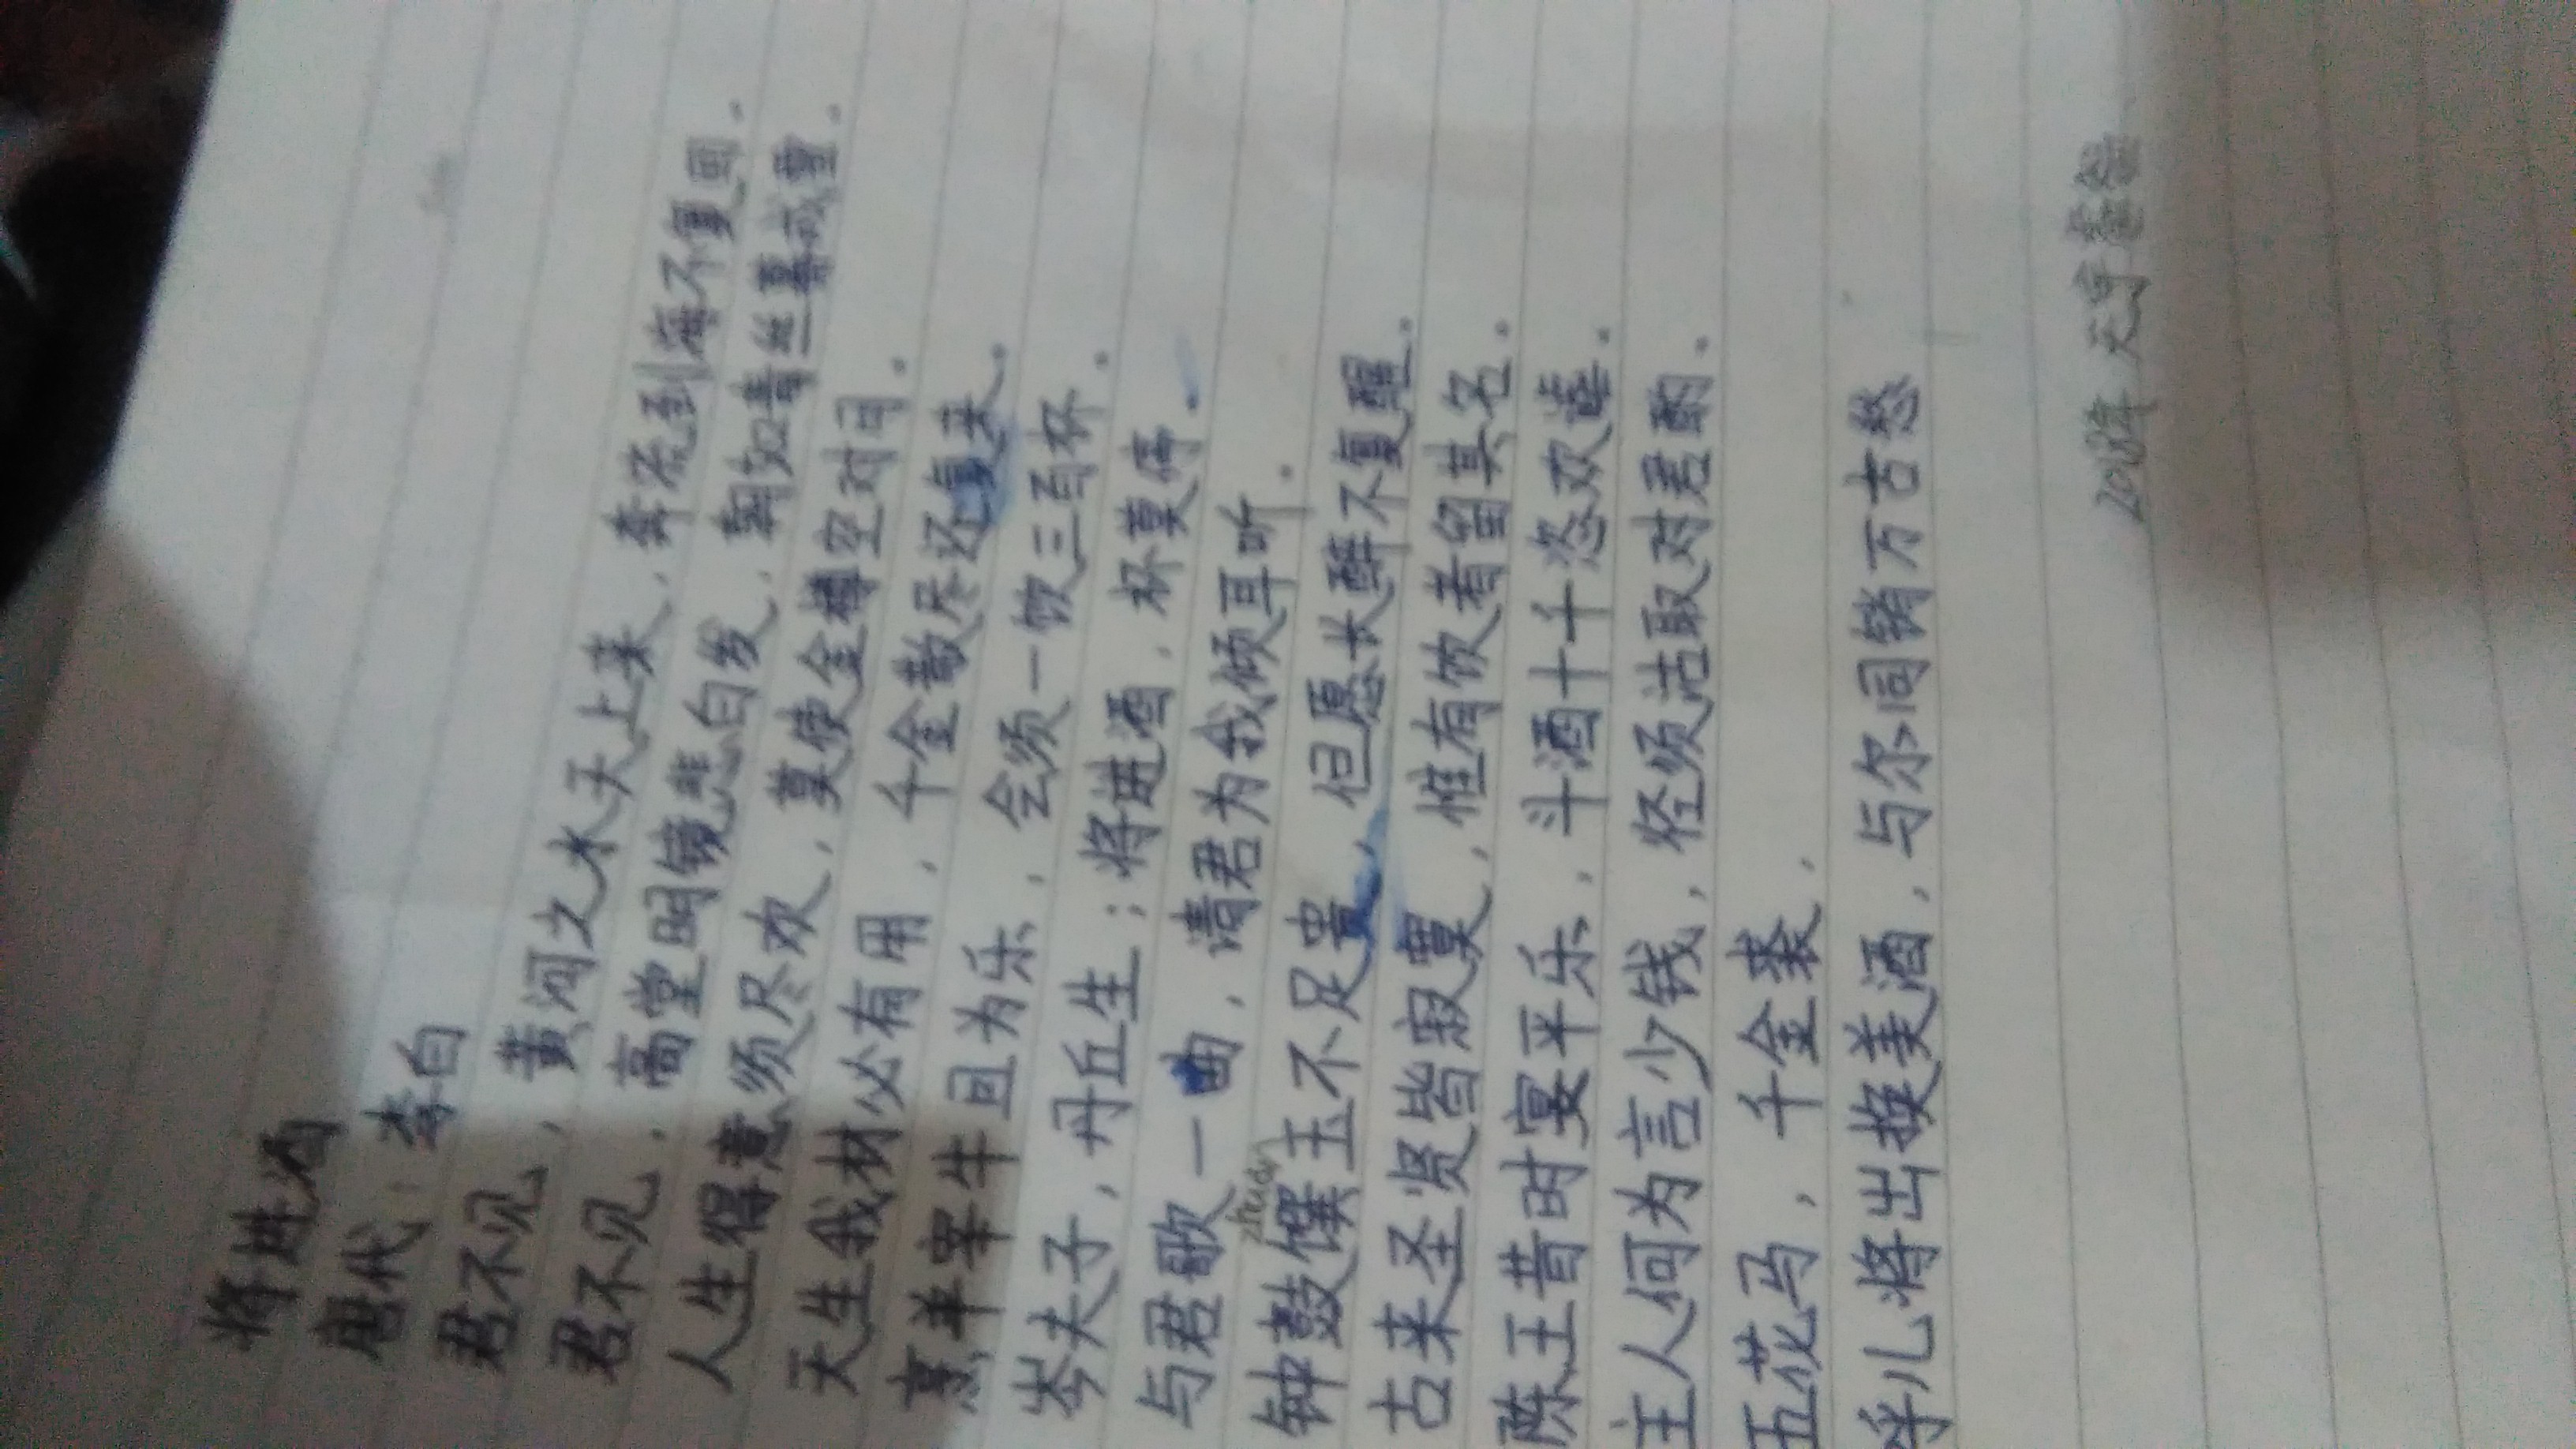 将进酒
唐代：李白
君不见，黄河之水天上来，奔流到海不复回。
君不见，高堂明镜悲白发，朝如青丝暮成雪。
人生得意须尽欢，莫使金樽空对月。
天生我材必有用，千金散尽还复来。
烹羊宰牛且为乐，会须一饮三百杯。
岑夫子，丹丘生；将进酒，杯莫停。
与君歌一曲，请君为我倾耳听。
zhuàn
钟鼓馔玉不足贵，但愿长醉不复醒。
古来圣贤皆寂寞，惟有饮者留其名。
陈王昔时宴平乐，斗酒十千恣欢谑。
主人何为言少钱，径须沽取对君酌。
五花马，千金裘，
呼儿将出换美酒，与尔同销万古愁
2018年 天宇